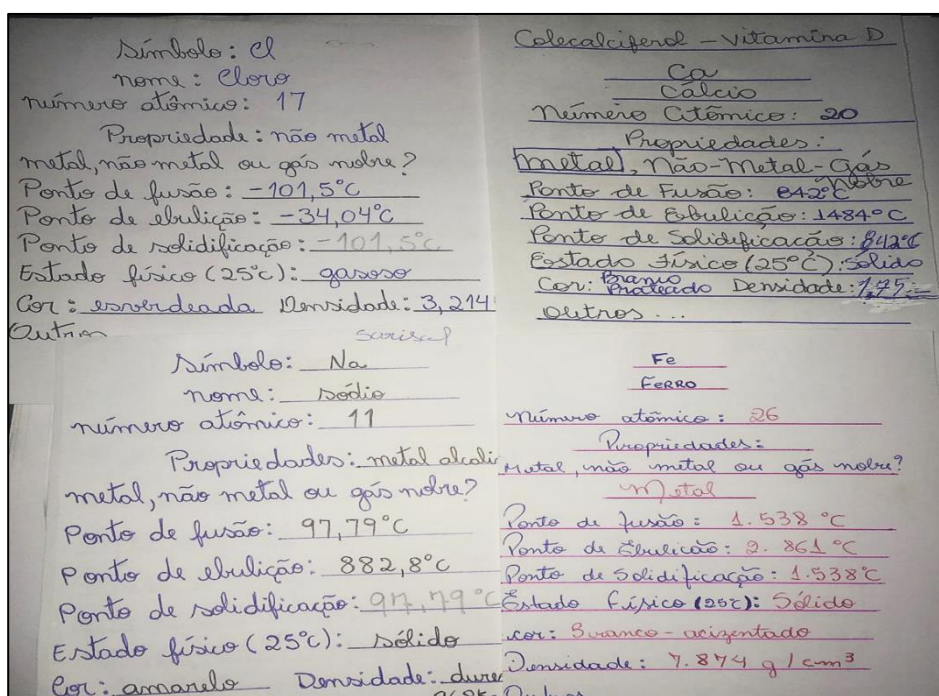 Símbolo: Cl
nome: Cloro
número atômico: 17
Propriedade: não metal
metal, não metal ou gás nobre?
Ponto de fusão: -101,5°C
Ponto de ebulição: -34,04°C
Ponto de solidificação: -101,5°C
Estado físico (25°C): gasoso
Cor: esverdeada Densidade: 3,214
Outros
Colecalciferol - Vitamina D
Ca
Cálcio
Número Atômico: 20
Propriedades:
Metal, Não-Metal-Gás
Nobre
Ponto de Fusão: 842°C
Ponto de Ebulição: 1484°C
Ponto de Solidificação: 842°C
Estado Físico (25°C): Sólido
Cor: Branco Prateado Densidade: 1,55
Outros...
Símbolo: Na
nome: sódio
número atômico: 11
Propriedades: metal alcali
metal, não metal ou gás nobre?
Ponto de fusão: 97,79°C
Ponto de ebulição: 882,8°C
Ponto de solidificação: 97,79°C
Estado físico (25°C): sólido
Cor: amarelo Densidade: dure
Fe
FERRO
número atômico: 26
Propriedades:
Metal, não metal ou gás nobre?
Metal
Ponto de fusão: 1.538 °C
Ponto de Ebulicão: 2.861 °C
Ponto de Solidificação: 1.538°C
Estado Físico (25°C): Sólido
cor: Branco-acizentado
Densidade: 7.874 g/cm³